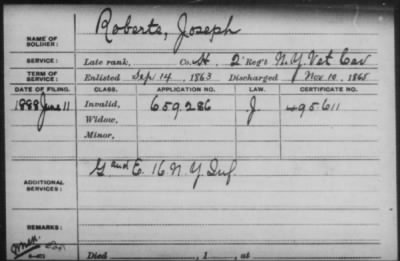 Roberts, Joseph
NAME OF SOLDIER:
SERVICE: Late rank, Co. H. 2 Reg't N.Y. Vet Cav
TERM OF SERVICE: Enlisted Sep 14, 1863 Discharged Nov. 10, 1865
DATE OF FILING. CLASS. APPLICATION NO. LAW. CERTIFICATE NO.
1888 June 11 Invalid, 659286 J. 495611
Widow,
Minor,
ADDITIONAL SERVICES: G and E. 16 N.Y. Inf.
REMARKS:
Died , 1 , at